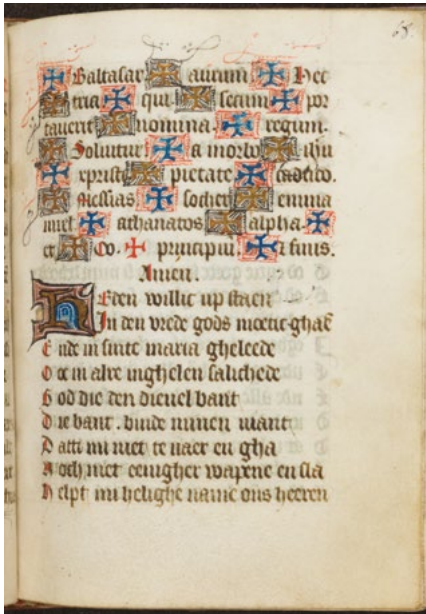 65.
✠ Baltasar ✠ aurum ✠ Hec
✠ tria ✠ qui ✠ secum ✠ por
tauerit ✠ nomina. ✠ regum.
✠ Soluitur ✠ a morbo ✠
✠ xpristi ✠ pietate ✠ caduco.
✠ Messias ✠ sother ✠ emma
nuel ✠ athanatos ✠ alpha. ✠
et ✠ Oo. ✠ principiu. ✠ finis.
Amen.
Heden willic up staen
In den vrede gods moetic ghaē
Ende in sinte maria gheleede
Oec in alre inghelen salichede
God die den dieuel bant
Die bant. binde minen viant
Datti mi niet te naer en gha
Noch met eenigher wapene en sla
Helpt mi helighe name ons heeren